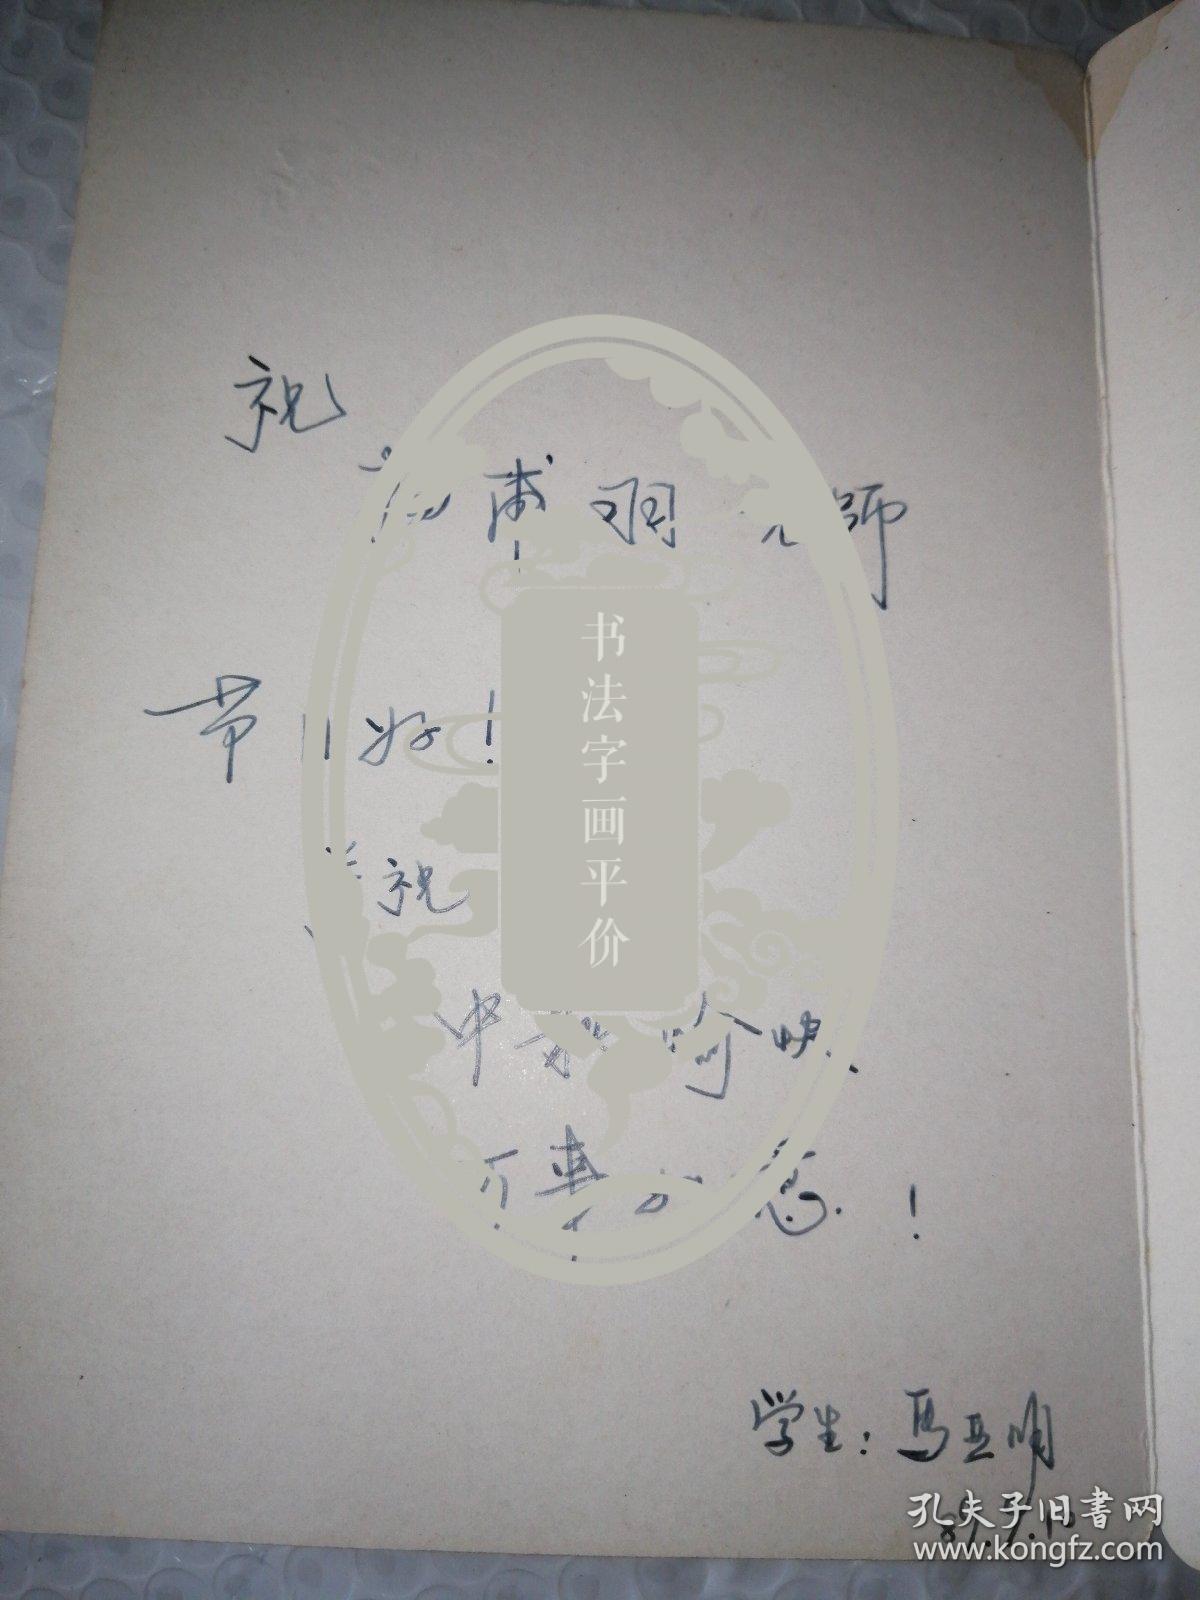 祝
甫羽老師
节日好！
并祝
中秋愉快、
万事如意！
学生：馬亚明
89.9.10
书法字画平价
孔夫子旧书网
www.kongfz.com